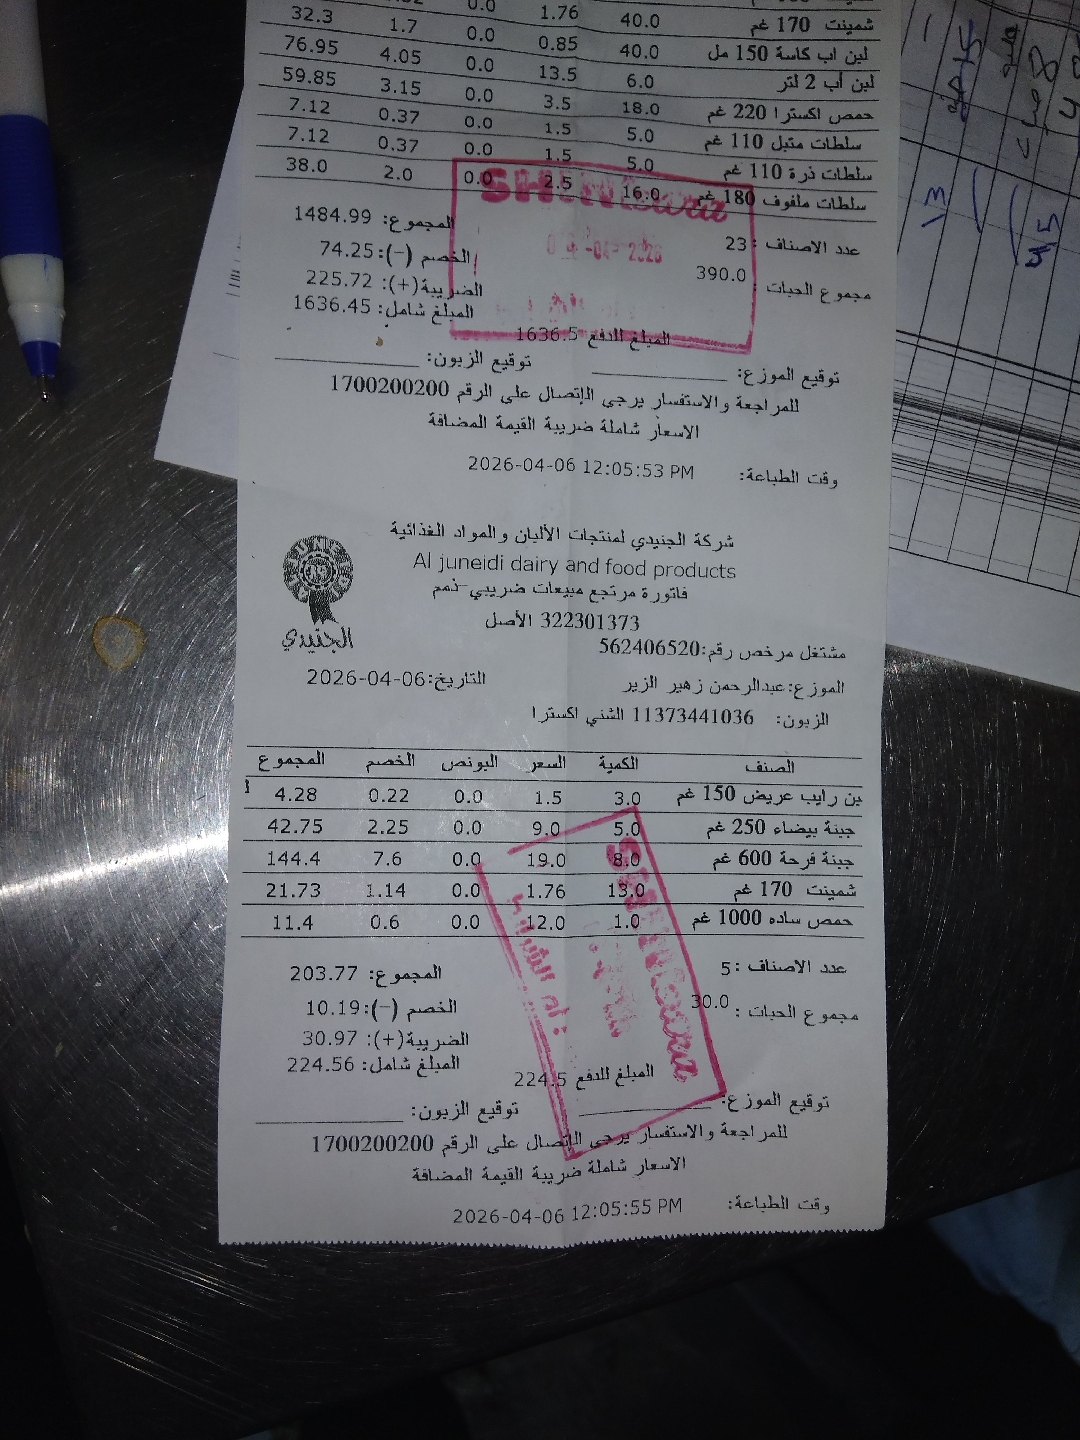 شمينت 170 غم 40.0 1.76 0.0 1.7 32.3
لبن اب كاسة 150 مل 40.0 0.85 0.0
لبن أب 2 لتر 6.0 13.5 0.0 4.05 76.95
حمص اكسترا 220 غم 18.0 3.5 0.0 3.15 59.85
سلطات متبل 110 غم 5.0 1.5 0.0 0.37 7.12
سلطات ذرة 110 غم 5.0 1.5 0.0 0.37 7.12
سلطات ملفوف 180 غم 16.0 2.5 0.0 2.0 38.0
المجموع: 1484.99
عدد الاصناف: 23
الخصم (-): 74.25
مجموع الحبات: 390.0
الضريبة(+): 225.72
المبلغ شامل: 1636.45
المبلغ للدفع 1636.5
توقيع الموزع: توقيع الزبون:
للمراجعة والاستفسار يرجى الإتصال على الرقم 1700200200
الاسعار شاملة ضريبة القيمة المضافة
وقت الطباعة: 2026-04-06 12:05:53 PM
شركة الجنيدي لمنتجات الألبان والمواد الغذائية
Al juneidi dairy and food products
فاتورة مرتجع مبيعات ضريبي-ذمم
322301373 الأصل
الجنيدي
مشتغل مرخص رقم:562406520
الموزع:عبدالرحمن زهير الزير التاريخ:2026-04-06
الزبون: 11373441036 الشني اكسترا
الصنف الكمية السعر البونص الخصم المجموع
بن رايب عريض 150 غم 3.0 1.5 0.0 0.22 4.28
جبنة بيضاء 250 غم 5.0 9.0 0.0 2.25 42.75
جبنة فرحة 600 غم 8.0 19.0 0.0 7.6 144.4
شمينت 170 غم 13.0 1.76 0.0 1.14 21.73
حمص ساده 1000 غم 1.0 12.0 0.0 0.6 11.4
عدد الاصناف: 5 المجموع: 203.77
مجموع الحبات: 30.0 الخصم (-): 10.19
الضريبة(+): 30.97
المبلغ شامل: 224.56
المبلغ للدفع 224.5
توقيع الموزع: توقيع الزبون:
للمراجعة والاستفسار يرجى الإتصال على الرقم 1700200200
الاسعار شاملة ضريبة القيمة المضافة
وقت الطباعة: 2026-04-06 12:05:55 PM